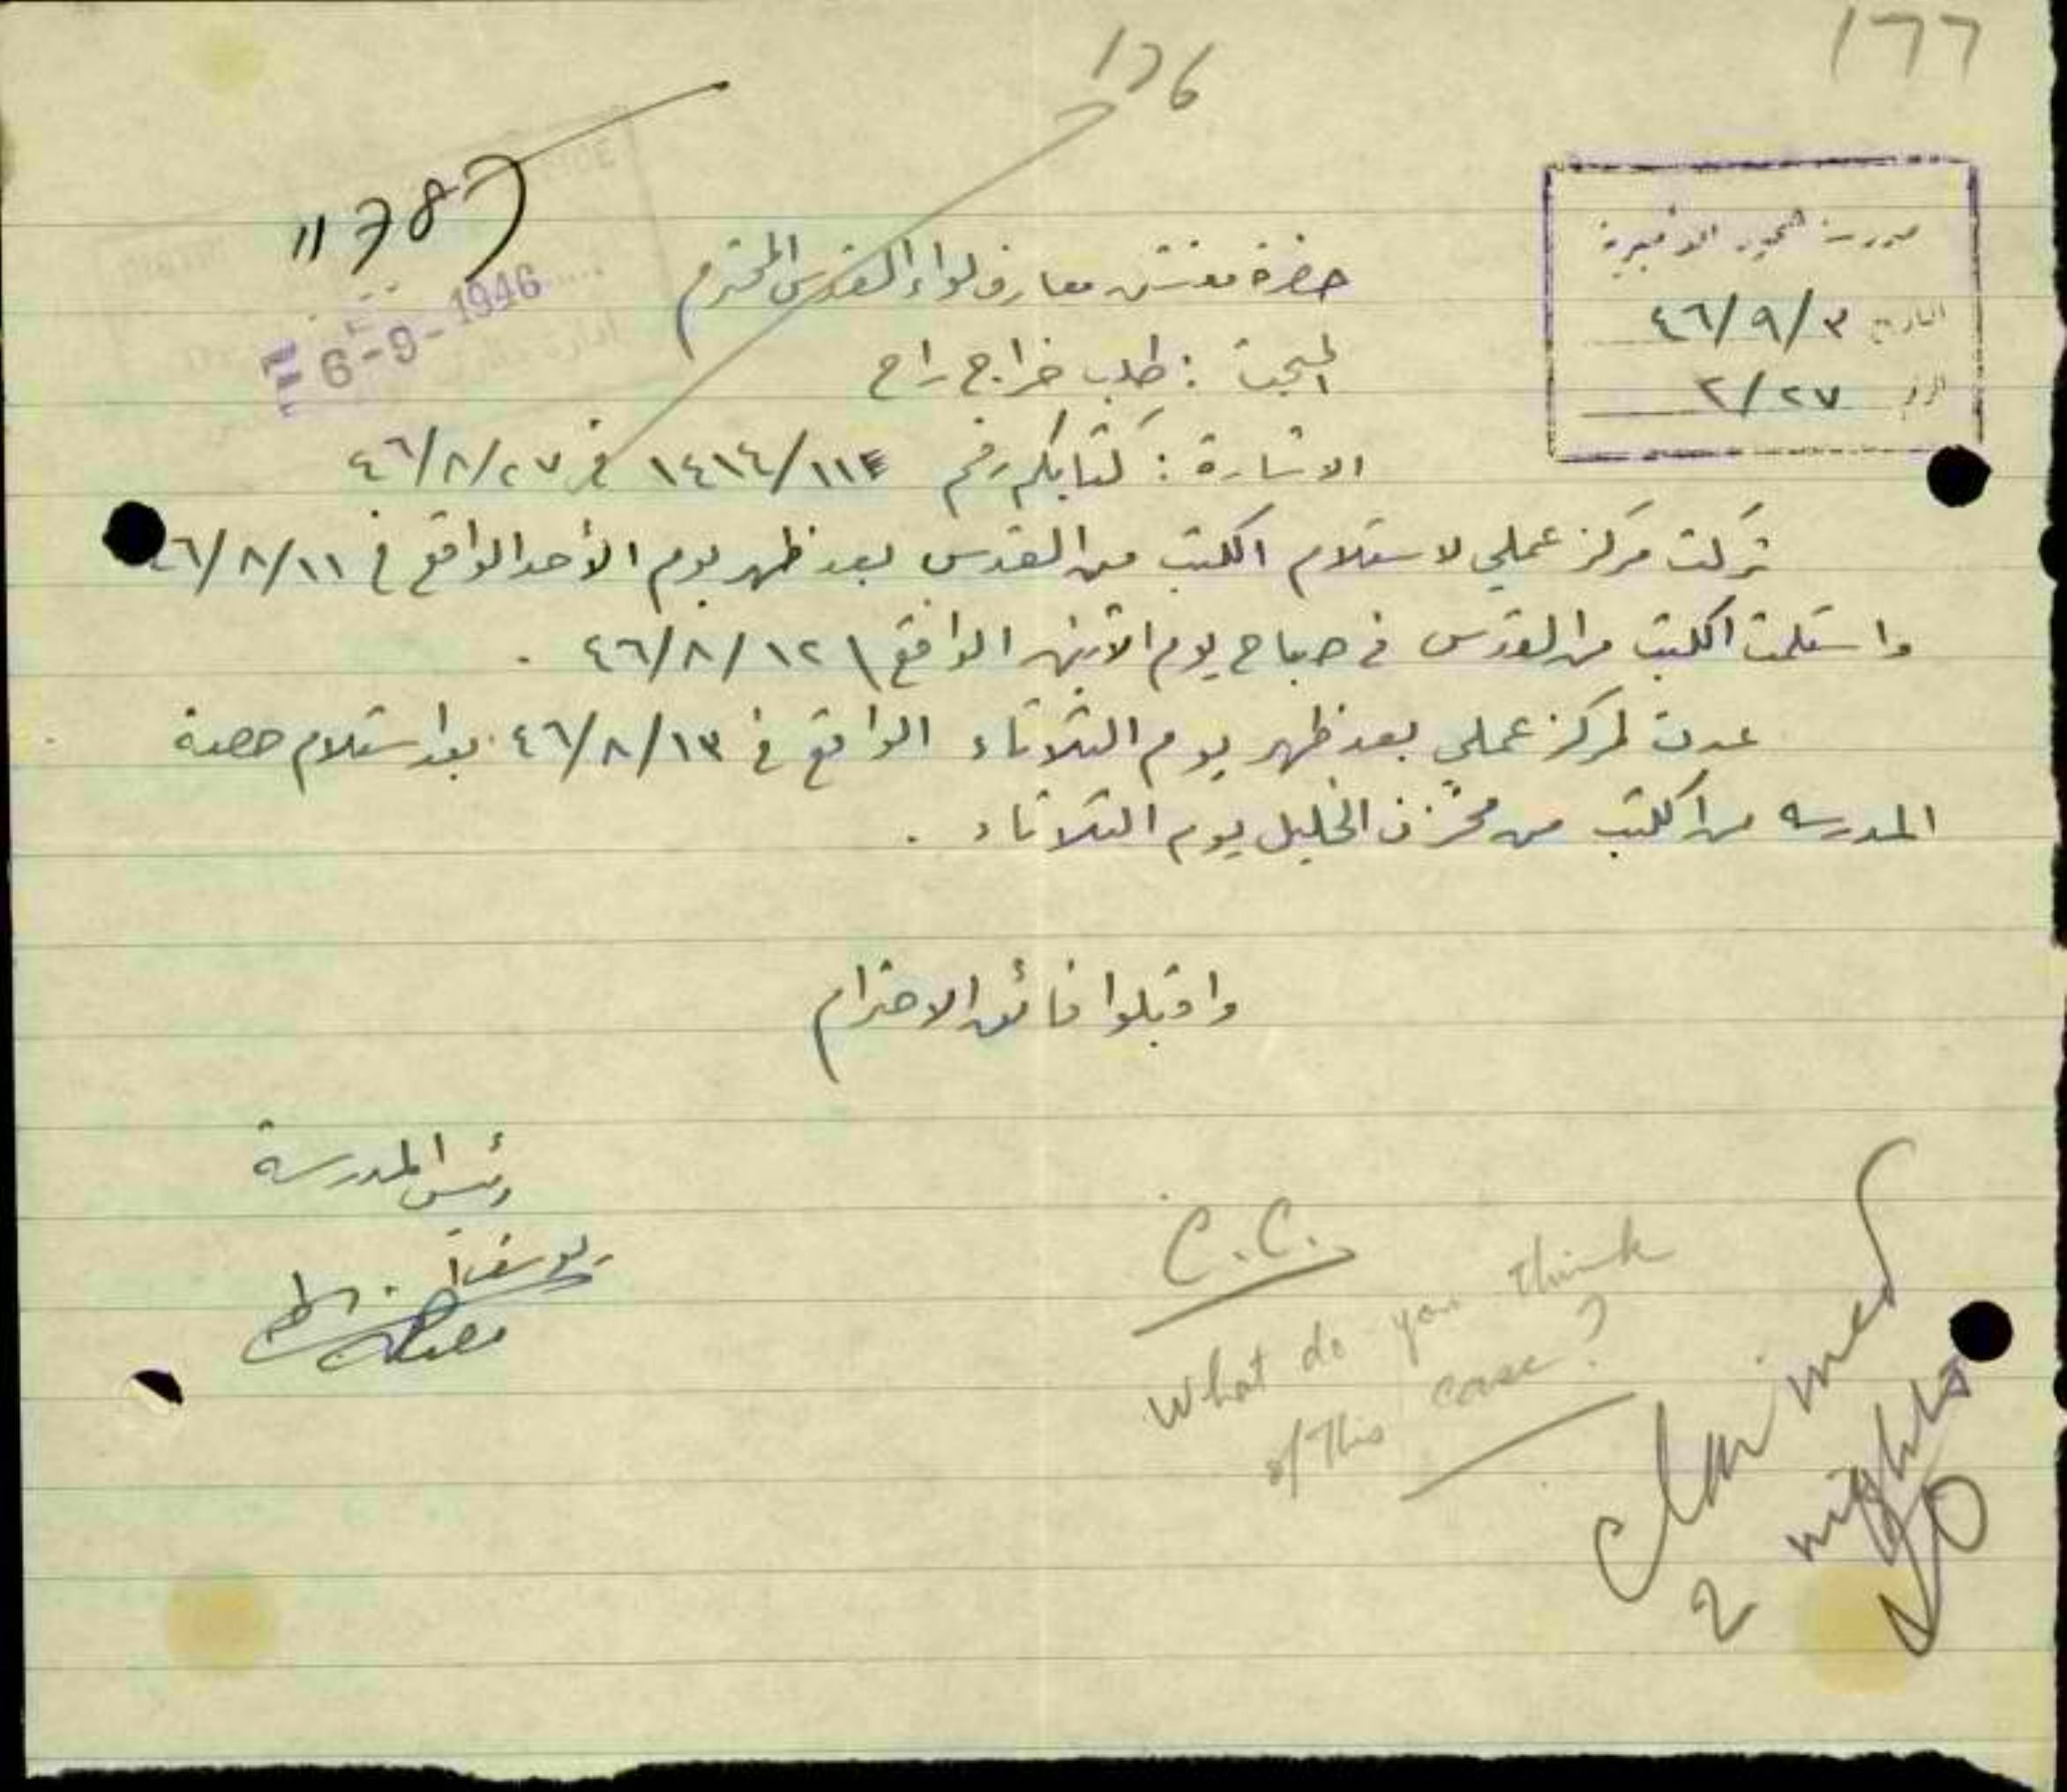 177
176
11787
6-9-1946
التاريخ ٤٦/٩/٣
الرقم ٢/٢٧
حضرة مفتش معارف لواء القدس المحترم
المبحث : طلب خراج راح
الاشارة : كتابكم رقم ١٤١٤/١١٤ في ٤٦/٨/٢٧
تركت مركز عملي لاستلام الكتب من القدس بعد ظهر يوم الأحد الواقع في ٤٦/٨/١١
واستلمت الكتب من القدس في صباح يوم الاثنين الواقع ٤٦/٨/١٢ .
عدت لمركز عملي بعد ظهر يوم الثلاثاء الواقع في ٤٦/٨/١٣ بعد استلام حصة
المدرسه من الكتب من مخزن الخليل يوم الثلاثاء .
واقبلوا فائق الاحترام
رئيس المدرسة
يوسف
C.C.
What do you think
of this case?
claimed
2 nights